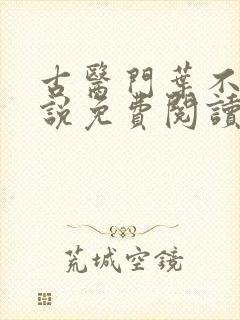 古醫門葉不
說免費閱讀
荒城空鏡